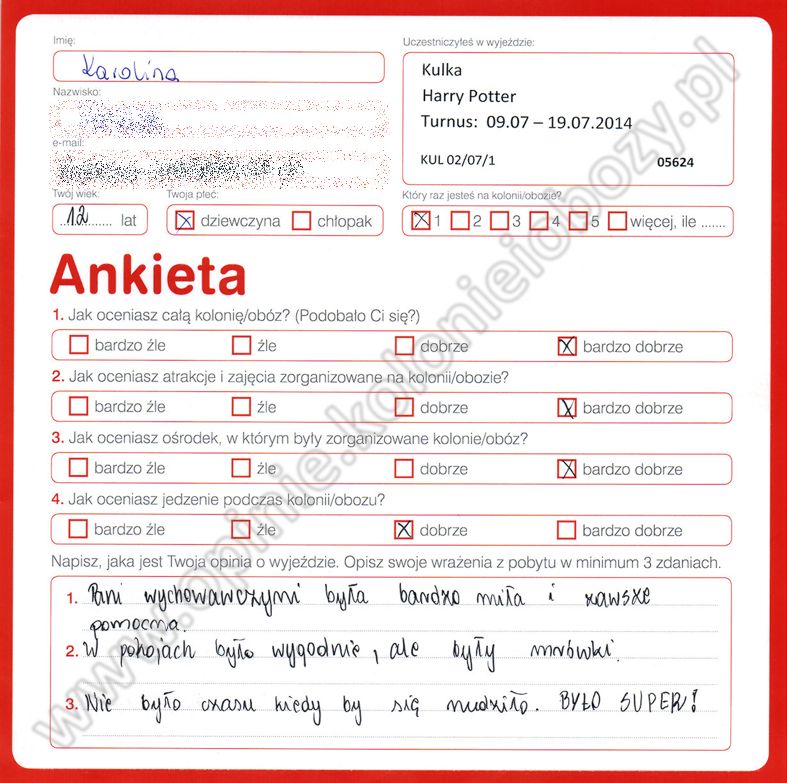 Imię:
Karolina
Uczestniczyłeś w wyjeździe:
Kulka
Harry Potter
Turnus: 09.07 – 19.07.2014
KUL 02/07/1 05624
Nazwisko:
e-mail:
Twój wiek:
12 lat
Twoja płeć:
dziewczyna chłopak
Który raz jesteś na kolonii/obozie?
1 2 3 4 5 więcej, ile .......
Ankieta
1. Jak oceniasz całą kolonię/obóz? (Podobało Ci się?)
bardzo źle źle dobrze bardzo dobrze
2. Jak oceniasz atrakcje i zajęcia zorganizowane na kolonii/obozie?
bardzo źle źle dobrze bardzo dobrze
3. Jak oceniasz ośrodek, w którym były zorganizowane kolonie/obóz?
bardzo źle źle dobrze bardzo dobrze
4. Jak oceniasz jedzenie podczas kolonii/obozu?
bardzo źle źle dobrze bardzo dobrze
Napisz, jaka jest Twoja opinia o wyjeździe. Opisz swoje wrażenia z pobytu w minimum 3 zdaniach.
1. Pani wychowawczymi była bardzo miła i zawsze
pomocna.
2. W pokojach było wygodnie, ale były mrówki.
3. Nie było czasu kiedy by się nudziło. BYŁO SUPER!
www.opinie.kolonieiobozy.pl